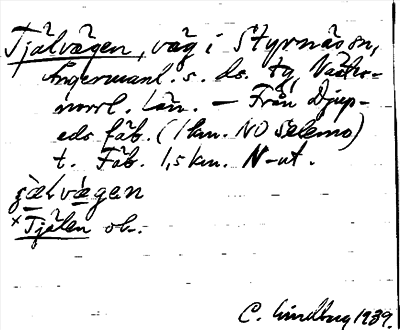 Tjälvägen, väg i Styrnäs sn,
Ångermanl. s. ds. tg, Västernorrl. län. — Från Djup-
eds fäb. (1 km. NO Salsmo)
t. Fäb. 1,5 km. N-ut.
jælvægen
×Tjälen ob.
C. Lindberg 1939.